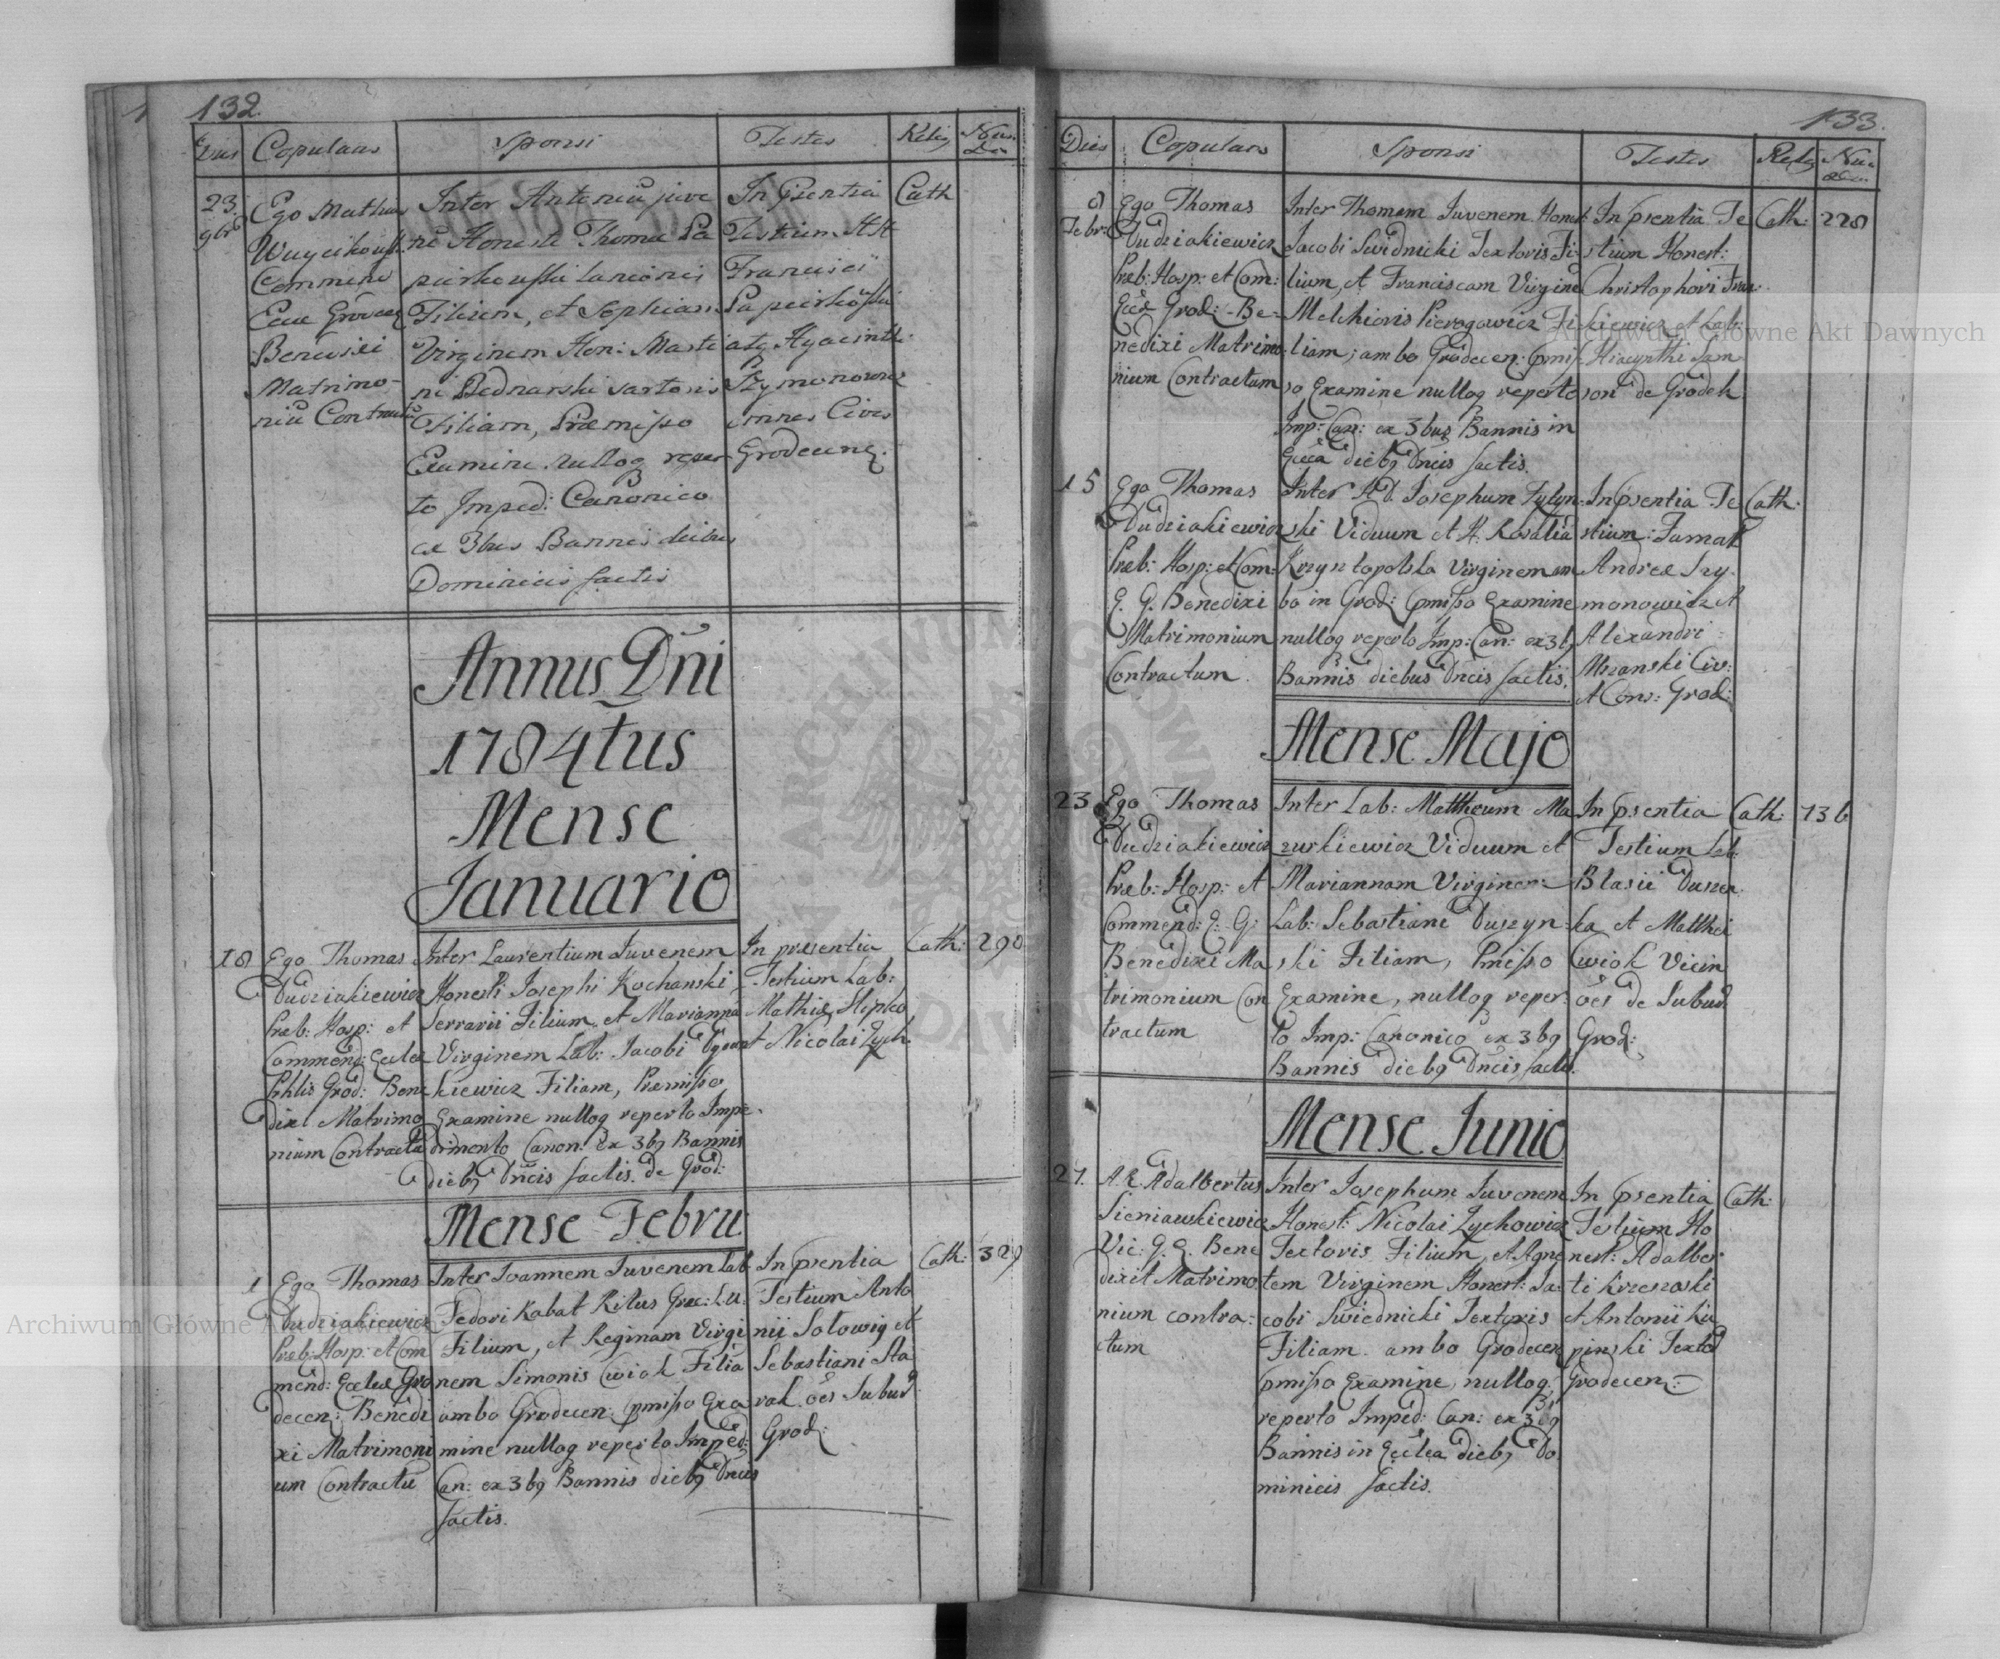 132.
Dies Copulans Sponsi Testes Relig Nu:
23.
9br
Ego Mathæus
Commend
Benedixi
Matrimo-
niū Contractū
Inter Antoniū juve
nē Honesti Thomæ Pa
pierkouski Lanionis
Filium, et Sophiam
Virginem Hon: Marti
ni Bednarski sartoris
Filiam, Præmisso
Examine nullog reper
to Imped: Canonico
ex 3bus Bannis diebus
Dominicis factis
In Psentia
Testium HH
Francisci
Papierkouski
atq Hyacinthi
Szymonowicz
omnes Cives
Grodecens.
Cath
Annus Dni
1784tus
Mense
Januario
18
Ego Thomas
Dudziakiewicz
Præb: Hosp: et
Commend: Ecclæ
Pchlis Grod: Bene
dixi Matrimo
nium Contractū
Inter Laurentium Juvenem
Honesti Josephi Kochanski
Serrarii Filium et Mariannā
Virginem Lab: Jacobi
kiewicz Filiam, Præmisso
Examine nullog reperto Impe-
dimento Canon: Ex 3bq Bannis
diebq Dncis factis. de Grod:
In præsentia
Testium Lab:
Mathiæ Slipko
et Nicolai Zych.
Cath: 290
Mense Febru:
1
Ego Thomas
Dudziakiewicz
Præb: Hosp: et Com
mend: Ecclæ Gro
decen: Benedi
xi Matrimoni
um Contractū
Inter Joannem Juvenem Lab:
Fedori Kabat Ritus Græc: LU:
Filium, et Reginam Virgi
nem Simonis Cwiok Filiā
ambo Grodecen: pmisso Exa
mine nullog reperto Imped:
Can: ex 3bq Bannis diebq Dncis
factis.
In psentia
Testium Anto
nii Solowig et
Sebastiani Sta
rak oēs Suburb
Grod:
Cath: 329
133.
Dies Copulans Sponsi Testes Relig Nu:
8
Febr:
Ego Thomas
Dudziakiewicz
Præb: Hosp: et Com:
Eccæ Grod: Be-
nedixi Matrimo
nium Contractum
Inter Thomam Juvenem Honest
Jacobi Swidnicki Textoris Fi-
lium, et Franciscam Virginē
Melchioris Pierogowicz Fi
liam, ambo Grodecen: pmis-
so Examine nullog reperto
Imp: Can: ex 3bus Bannis in
Eccla diebq Dncis factis.
In psentia Te
stium Honest:
Christophori Fran
kiewicz et Lab:
Hiacynthi Sam
son de Grodek
Cath: 228
15
Ego Thomas
Dudziakiewicz
Præb: Hosp: et Com:
E. G. Benedixi
Matrimonium
Contractum.
Inter H. Josephum Tylyn-
ski Viduum et H: Rosaliā
Krzysztopolska Virginem am
bo in Grod: pmisso Examine
nullog reperto Imp: Can: ex 3bq
Bannis diebus Dncis factis.
In psentia Te
stium: Famat
Andreæ Szy-
monowicz et
Alexandri
Mrzanski Civ:
et Cons: Grod:
Cath:
Mense Majo
23
Ego Thomas
Dudziakiewicz
Præb: Hosp: et
Commend: E: G:
Benedixi Ma
trimonium Con
tractum
Inter Lab: Mattheum Ma
zurkiewicz Viduum et
Mariannam Virginem
Lab: Sebastiani Duszyn-
ski Filiam, Pmisso
Examine, nullog reper-
to Imp: Canonico ex 3bq
Bannis diebq Dncis factis.
In psentia
Testium Lab:
Blasii Duszen
ka et Matthei
Cwiok Vicin
oēs de Suburb
Grod:
Cath: 136
Mense Junio
27.
A. R. Adalbertus
Sieniawkiewicz
Vic: E. G. Bene
dixit Matrimo
nium contra-
ctum
Inter Josephum Juvenem
Honest: Nicolai Zychowicz
Textoris Filium, et Agne
tem Virginem Honest: Ja-
cobi Swiednicki Textoris
Filiam. ambo Grodecen
pmisso Examine, nullog
reperto Imped: Can: ex 3bq
Bannis in Ecclea diebq Do
minicis factis.
In psentia
Testium Ho
nest: Adalber
ti Krzezoski
et Antonii Lu
pinski Textor
Grodecen:
Cath:
Archiwum Główne Akt Dawnych